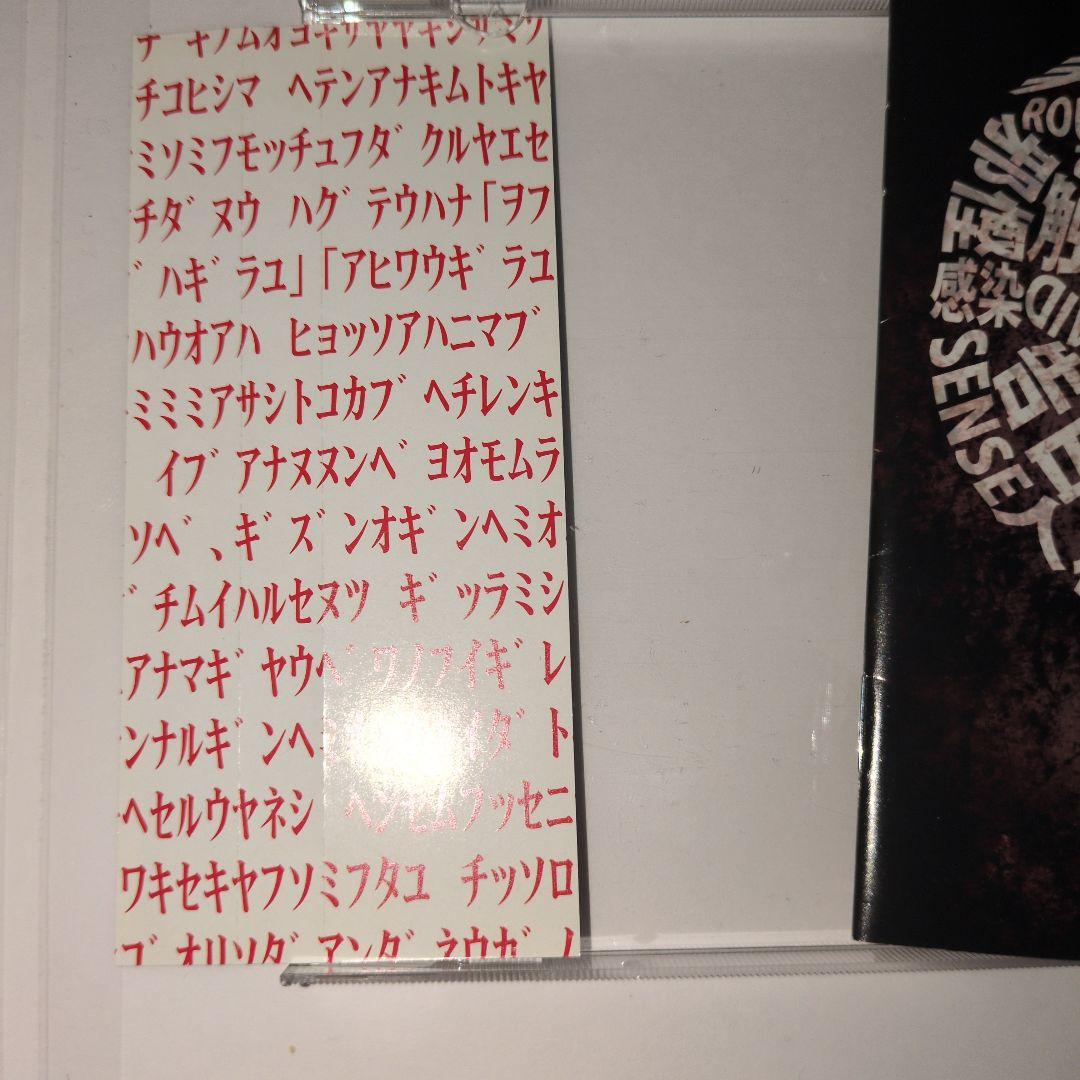 チコヒシマ ヘテンアナキムトキヤ
ミソミフモッチュフダ クルヤエセ
チダ ヌウ ハグ テウハナ「ヲフ
゛ハギ ラユ」「アヒワウギ ラユ
ハウオアハ ヒョッソアハニマブ
ミミミアサシトコカブ ヘチレンキ
イブ アナヌヌンベ ヨオモムラ
ソベ、ギ ズ ンオギ ンヘミオ
゛チムイハルセヌツ ギ ッラミシ
アナマギ ヤウベ ワノフイギ レ
ンナルギ ンヘ ダ ト
ヘセルウヤネシ ヘンセムフッセニ
ワキセキヤフソミフタユ チッソロ
ブ オリソダ アンダ ネウガ ノ
ROU
邪
感染
SENSE